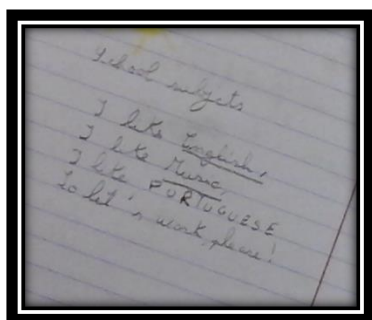 School subjects
I like English,
I like Music,
I like PORTUGUESE
So let's work, please!